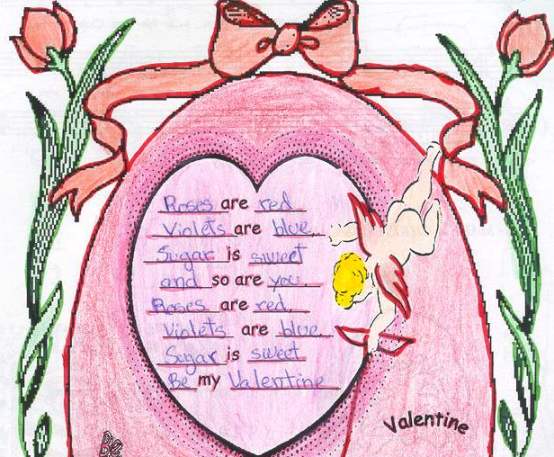 Roses are red
Violets are blue.
Sugar is sweet
and so are you.
Roses are red.
Violets are blue
Sugar is sweet
Be my Valentine
Valentine
Be